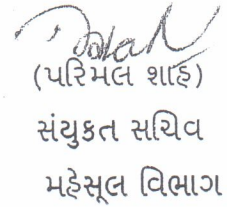 (પરિમલ શાહ)
સંયુકત સચિવ
મહેસૂલ વિભાગ